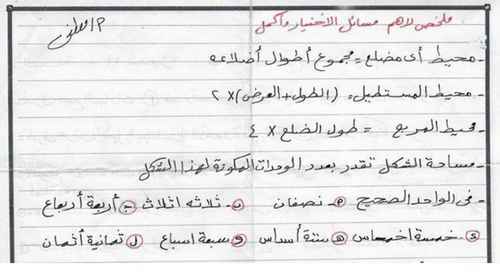 ملخص لاهم مسائل الاختيار وأكمل
- محيط أى مضلع = مجموع أطوال أضلاعه
- محيط المستطيل = (الطول + العرض) × ٢
- محيط المربع = طول الضلع × ٤
- مساحة الشكل تقدر بعدد الوحدات المكونة لهذا الشكل
- فى الواحد الصحيح نصفان ثلاثة اثلاث أربعة أرباع
خمسة اخماس ستة أسداس سبعة اسباع ثمانية أثمان